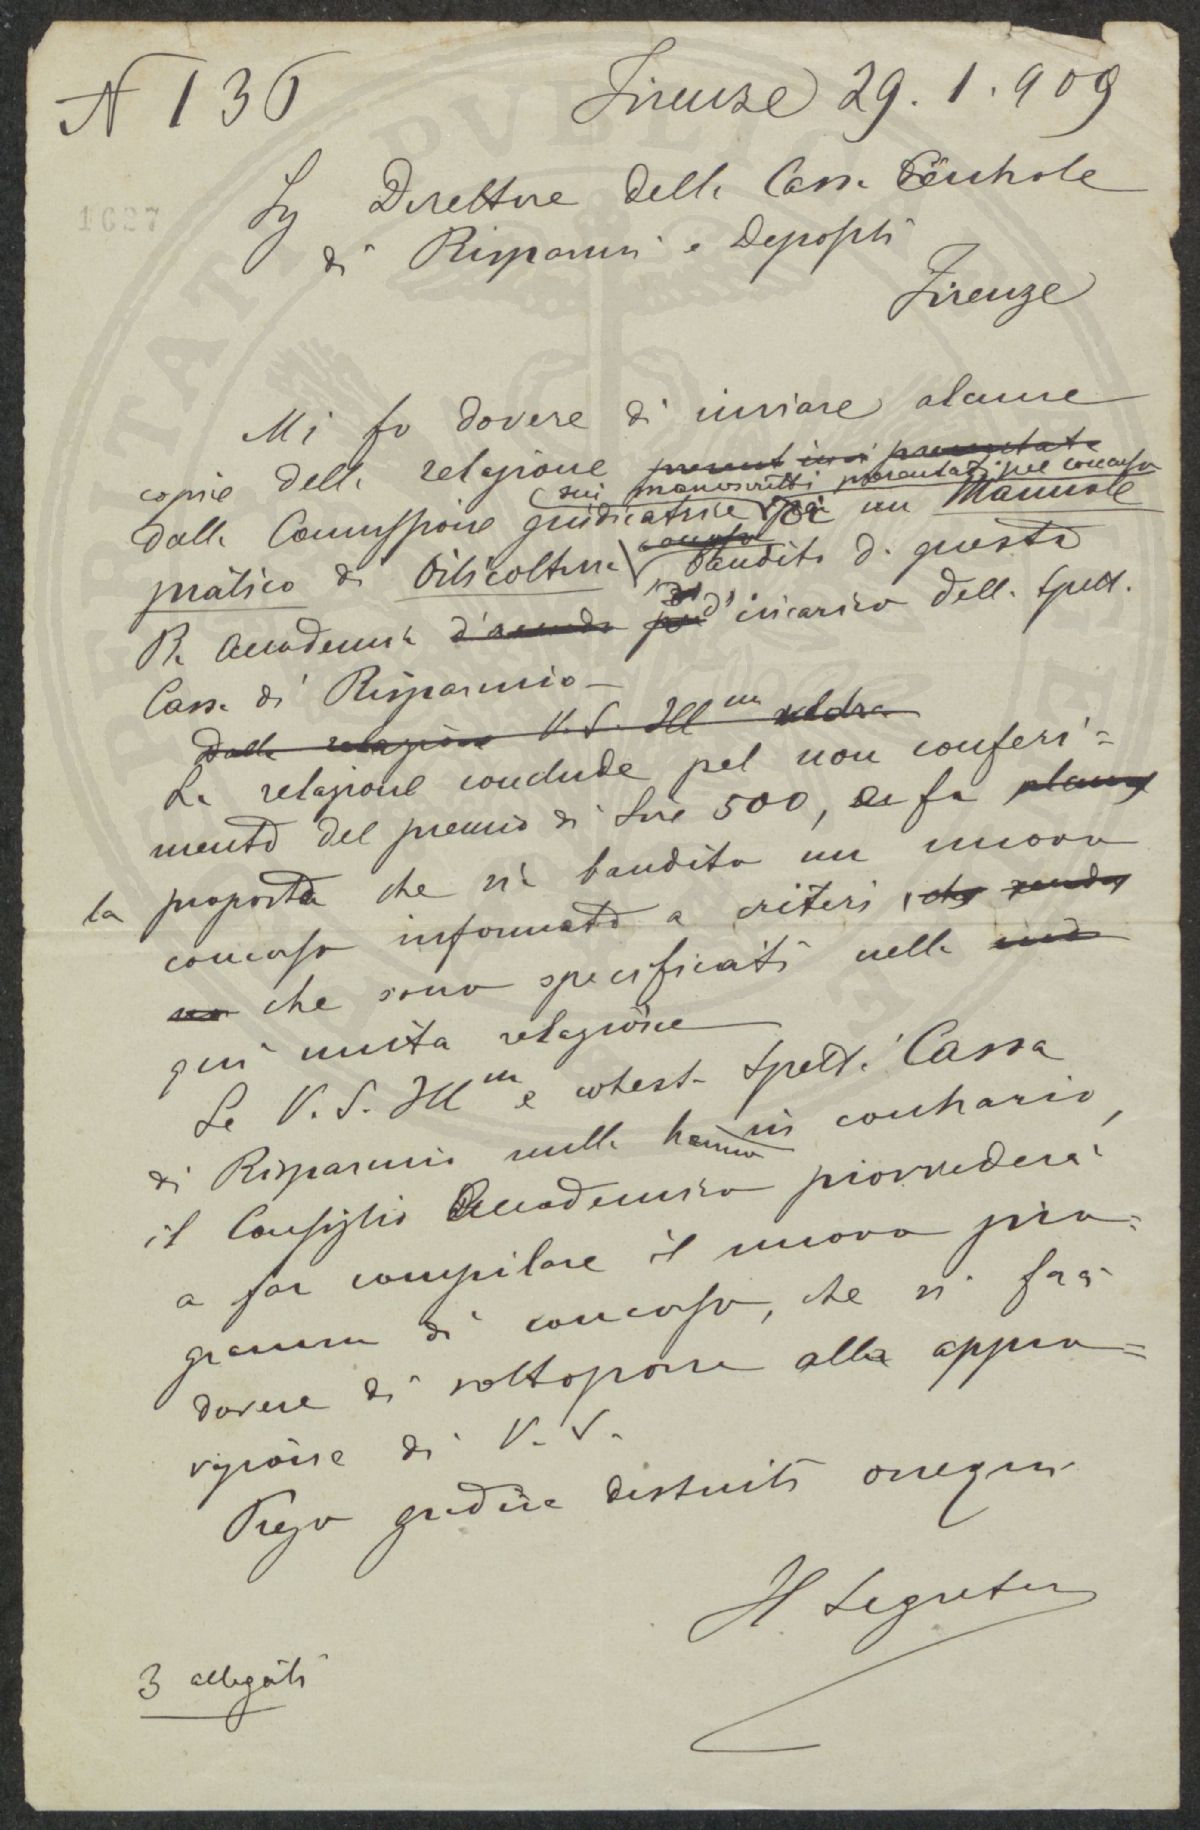 N 136 Firenze 29.1.909
Sig Direttore della Cassa Centrale
1627
di Risparmi e Depositi
Firenze
Mi fo dovere di inviare alcune
copie della relazione present presentata
sui manoscritti presentati pel concorso
dalla Commissione giudicatrice per un Manuale
pratico di Olivicoltura concorso bandito da questa
R. Accademia d'incarico della Spett.
Cassa di Risparmio
Dalla relazione V.S. Ill ma vedrà
La relazione conclude pel non conferi=
mento del premio di Lire 500, e fa
la proposta che sia bandito un nuovo
concorso informato a criteri, che
che sono specificati nella
qui unita relazione
Se V. S. Ill ma e cotesta Spett. Cassa
di Risparmio nulla hanno in contrario,
il Consiglio Accademico provvederà
a far compilare il nuovo pro=
gramma di concorso, che si farà
dovere di sottoporre alla appro=
vazione di V. S.
Prego gradire distinti ossequi
Il Segretario
3 allegati